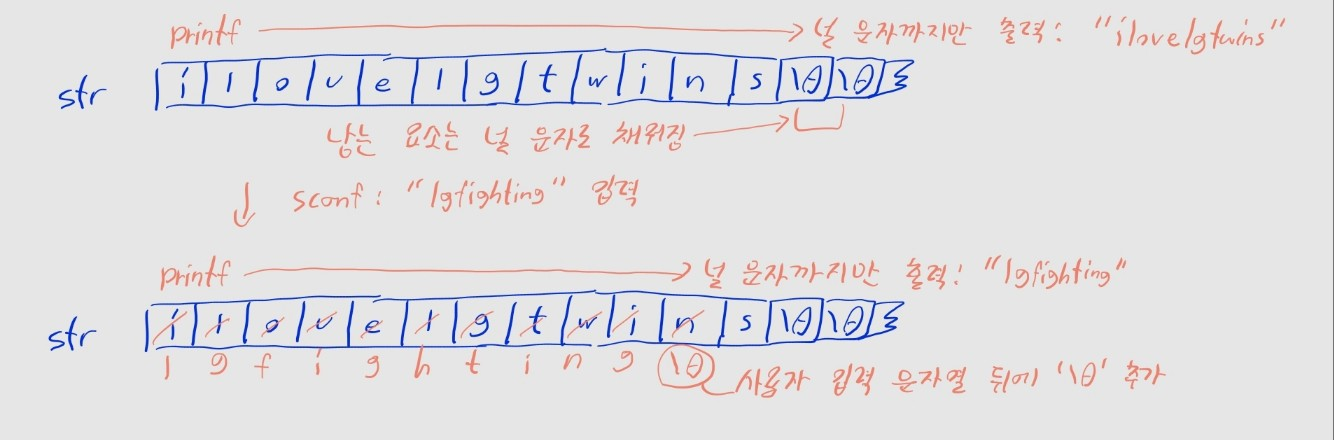 printf → 널 문자까지만 출력: "ilovelgtwins"
str i l o v e l g t w i n s \0 \0
남는 요소는 널 문자로 채워짐
↓ scanf: "lgfighting" 입력
printf → 널 문자까지만 출력: "lgfighting"
str i l o v e l g t w i n s \0 \0
l g f i g h t i n g \0 사용자 입력 문자열 뒤에 '\0' 추가